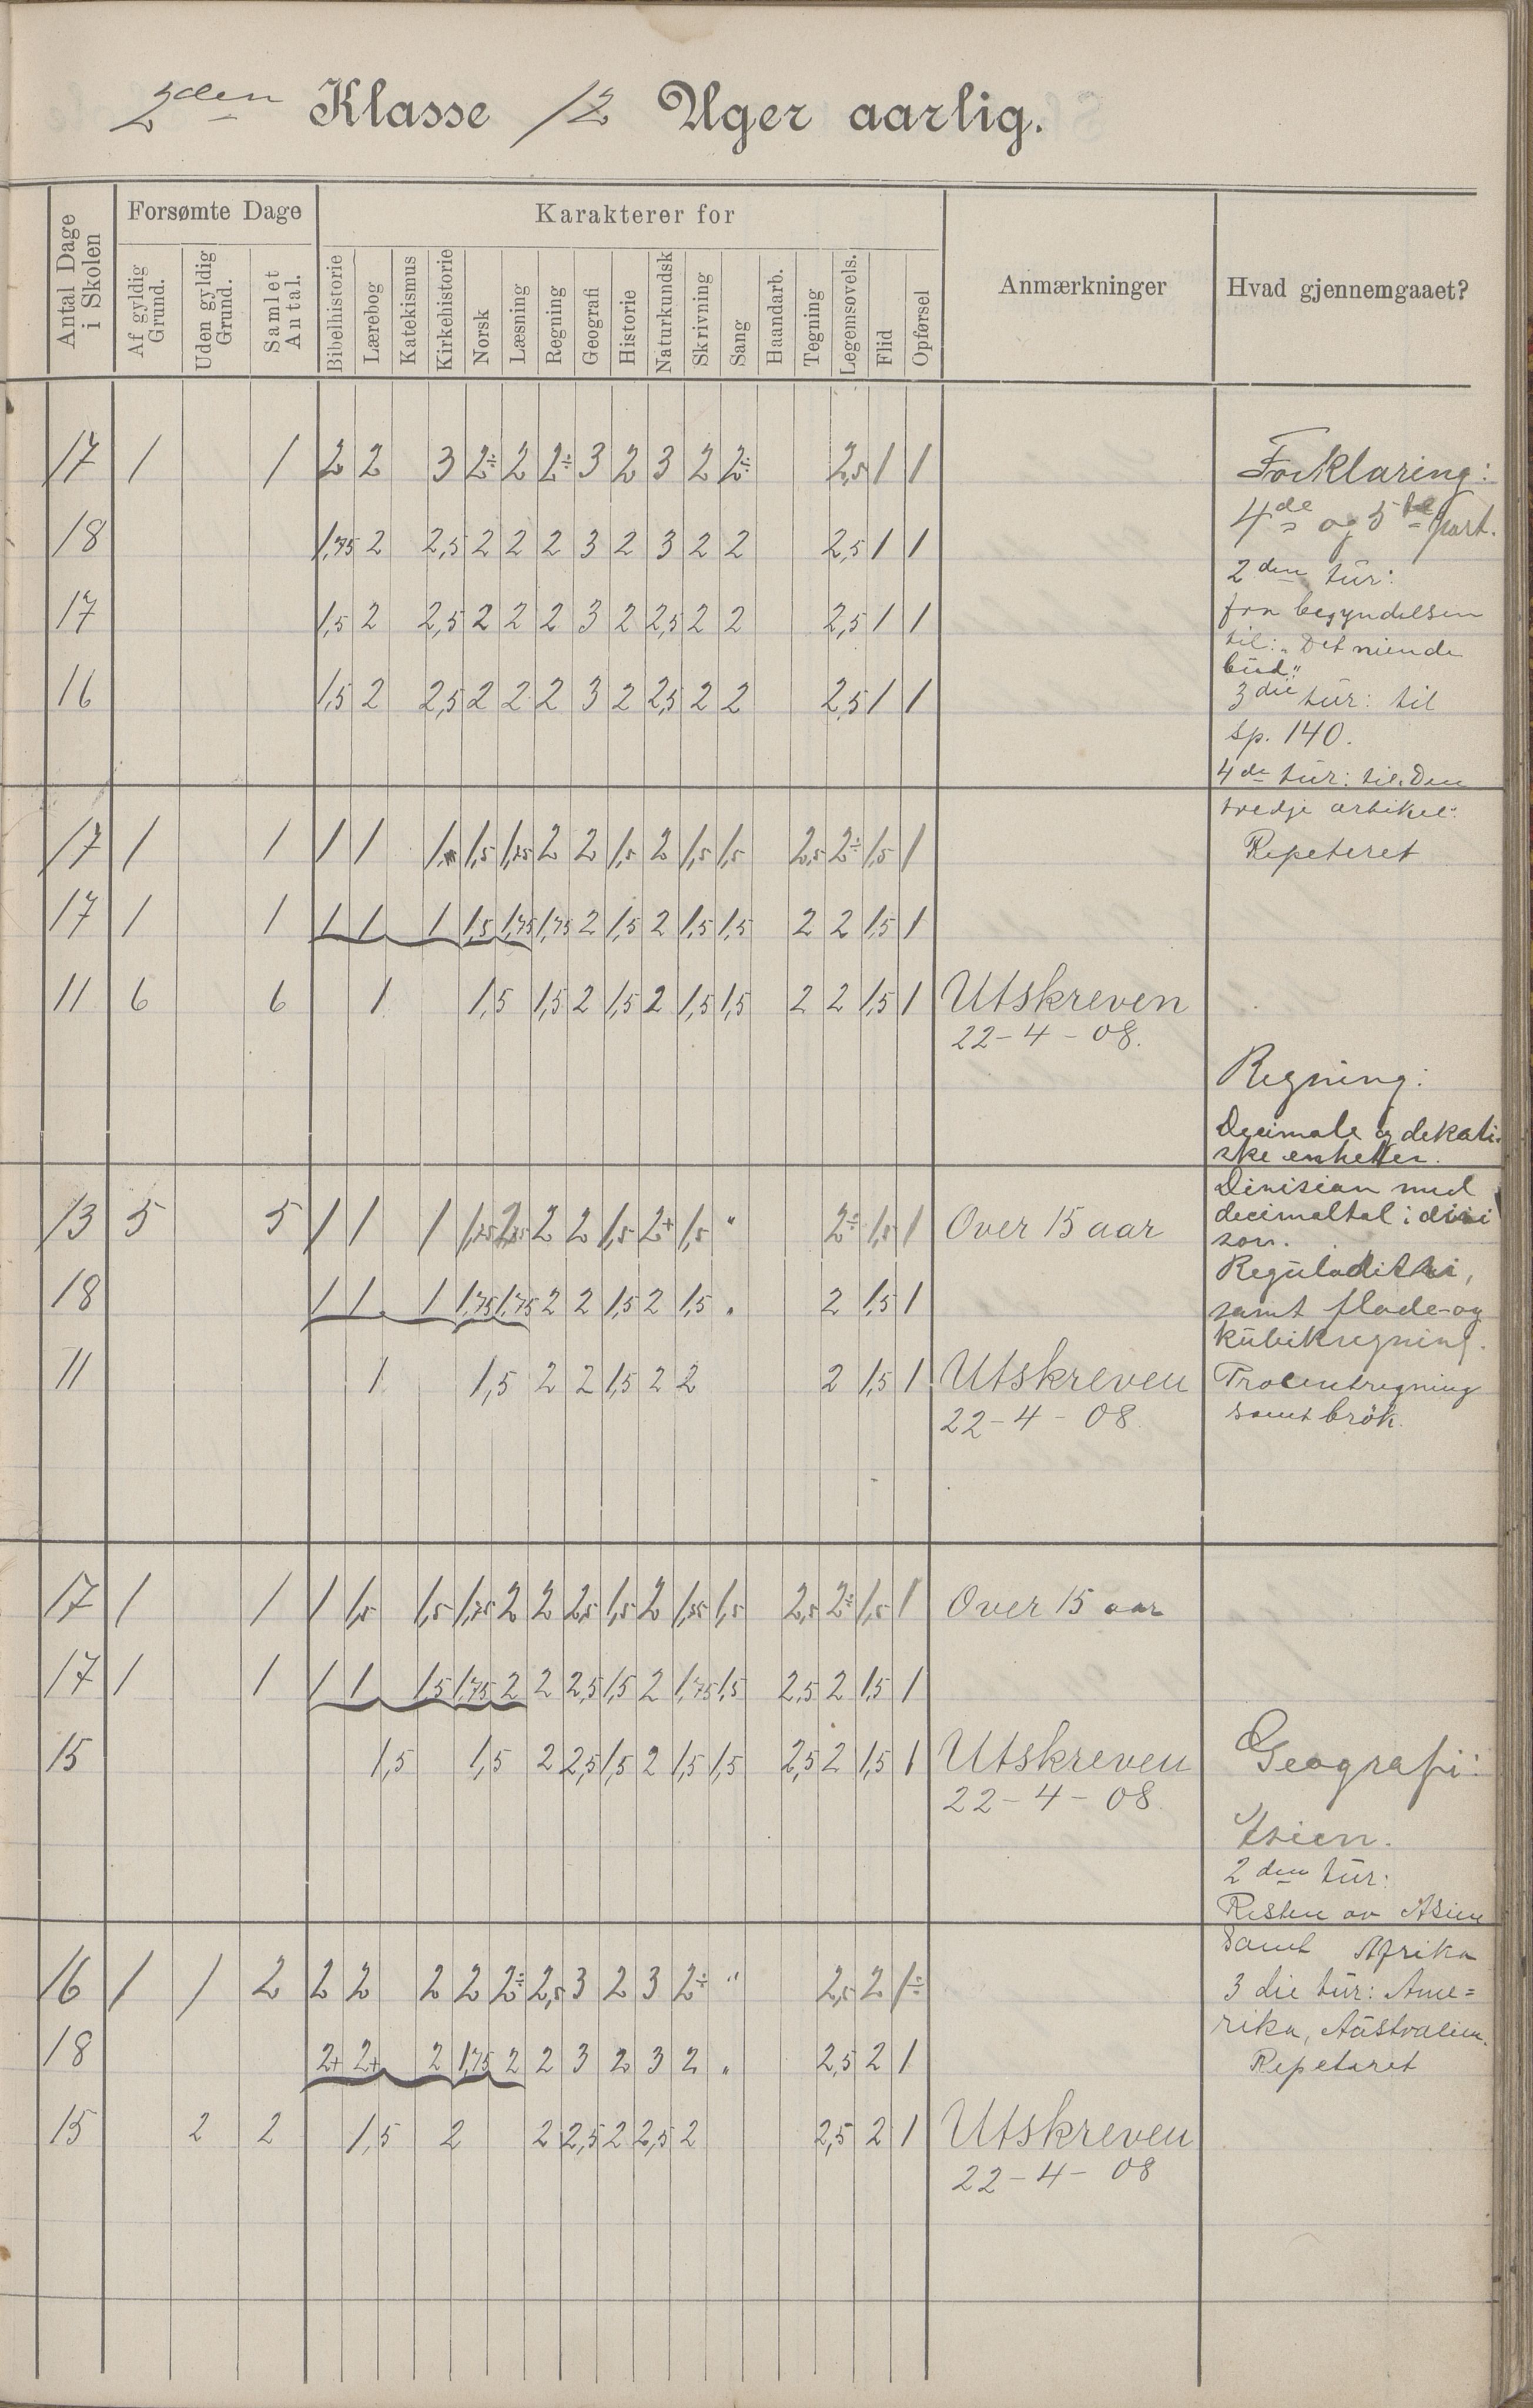 2den Klasse 12 Uger aarlig.
Antal Dage i Skolen
Forsømte Dage
Karakterer for
Anmærkninger
Hvad gjennemgaaet?
Af gyldig Grund.
Uden gyldig Grund.
Samlet Antal.
Bibelhistorie
Lærebog
Katekismus
Kirkehistorie
Norsk
Læsning
Regning
Geografi
Historie
Naturkundsk
Skrivning
Sang
Haandarb.
Tegning
Legemsovels.
Flid
Opførsel
17 1 1 2 2 3 2÷ 2 2÷ 3 2 3 2 2÷ 2,5 1 1
18 1,75 2 2,5 2 2 2 3 2 3 2 2 2,5 1 1
17 1,5 2 2,5 2 2 2 3 2 2,5 2 2 2,5 1 1
16 1,5 2 2,5 2 2 2 3 2 2,5 2 2 2,5 1 1
Forklaring:
4de og 5te part.
2den tur:
fra begyndelsen
til: "Det niende
bud"
3die tur: til
sp. 140.
4de tur: til Den
tredje artikel.
Repeteret
17 1 1 1 1 1 1,5 1,75 2 2 1,5 2 1,5 1,5 2,5 2÷ 1,5 1
17 1 1 1 1 1 1,5 1,75 1,75 2 1,5 2 1,5 1,5 2 2 1,5 1
11 6 6 1 1,5 1,5 2 1,5 2 1,5 1,5 2 2 1,5 1 Utskreven
22-4-08.
Regning:
Decimale og dekati-
ske enheter.
Division med
decimaltal i divi
sor.
Reguladetri,
samt flade- og
kubikregning.
Procentregning
samt brøk.
13 5 5 1 1 1 1,75 2 2 1,5 2+ 1,5 " 2÷ 1,5 1 Over 15 aar
18 1 1 1 1,75 1,75 2 2 1,5 2 1,5 " 2 1,5 1
11 1 1,5 2 2 1,5 2 2 2 1,5 1 Utskreven
22-4-08.
17 1 1 1 1,5 1,5 1,75 2 2 2,5 1,5 2 1,75 1,5 2,5 2÷ 1,5 1 Over 15 aar
17 1 1 1 1 1,5 1,75 2 2 2,5 1,5 2 1,75 1,5 2,5 2 1,5 1
15 1,5 1,5 2 2,5 1,5 2 1,5 1,5 2,5 2 1,5 1 Utskreven
22-4-08.
Geografi:
Asien.
2den tur:
Resten av Asien
samt Afrika
3die tur: Ame=
rika, Australien.
Repeteret
16 1 1 2 2 2 2 2 2÷ 2,5 3 2 3 2÷ " 2,5 2 1÷
18 2+ 2+ 2 1,75 2 2 3 2 3 2 " 2,5 2 1
15 2 2 1,5 2 2 2,5 2 2,5 2 2,5 2 1 Utskreven
22-4-08